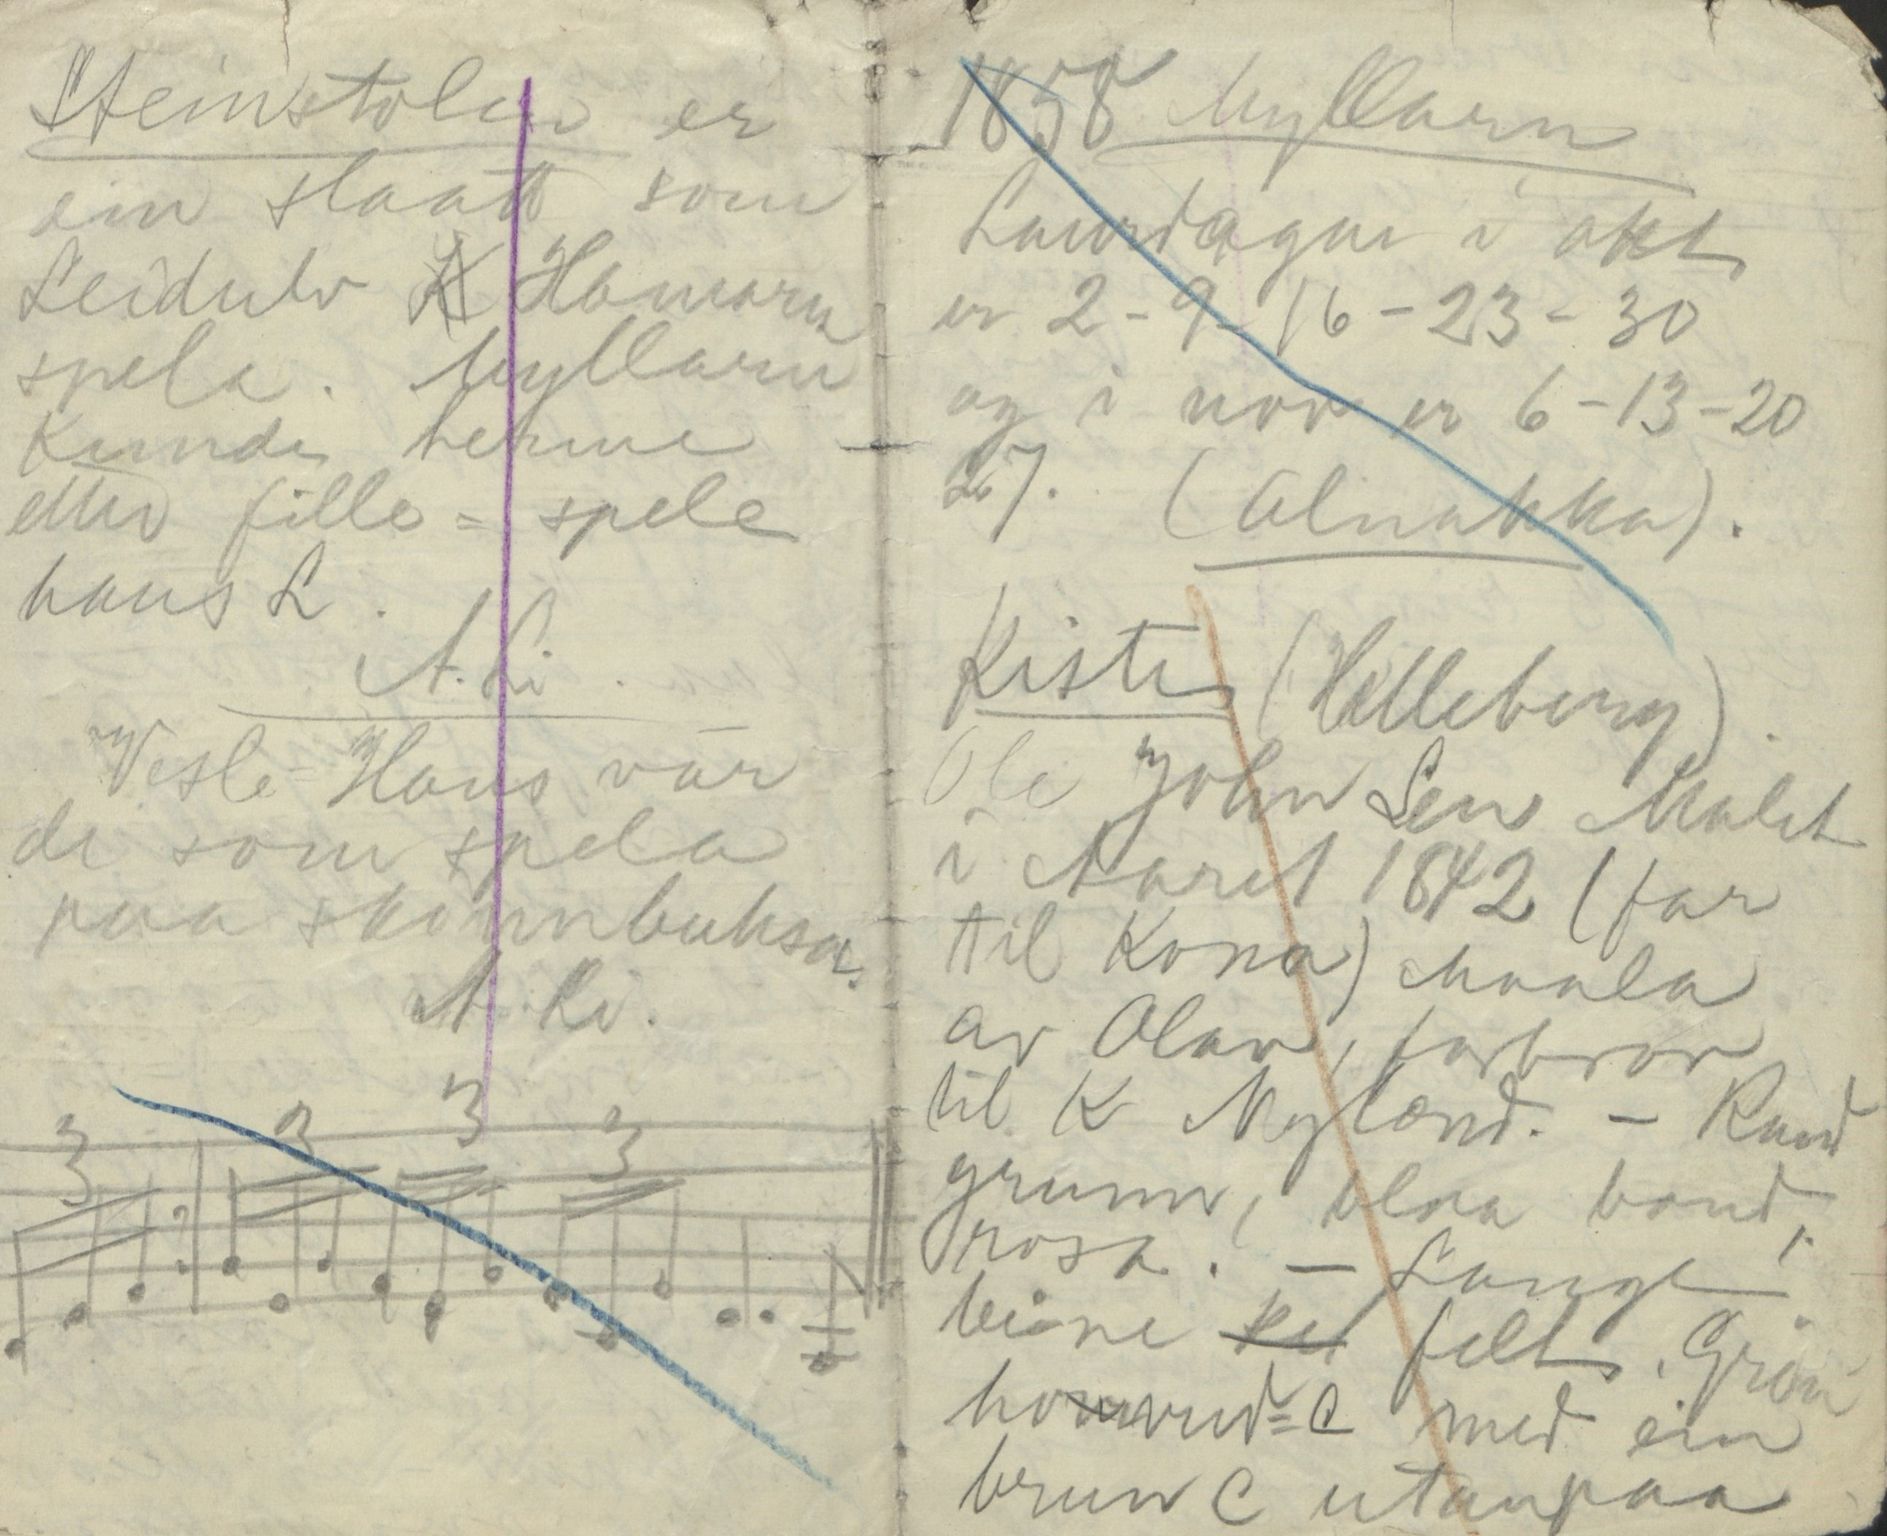 Steinstolen er
ein slaatt som
Leidulv Homarn
spela. Myllarn
kunde herme
etter fille-spele
hans L.
A. Li.
Vesle-Hans var
de som spela
paa skinnbuksa.
A. Li.
3 3 3 3
1858 Myllarn
Laurdagar i okt.
er 2-9-16-23-30
og i nov er 6-13-20
27. (Alnakka).
Kiste (Helleberg).
Ole John Sen Malet
i Aaret 1842 (far
til Kona) maala
av Olav, farbror
til K Nyland. - Raud
grunn, blaa band,
rosa. - Langt
beine felt. Grøn
hovud=C med ein
brun C utanpaa